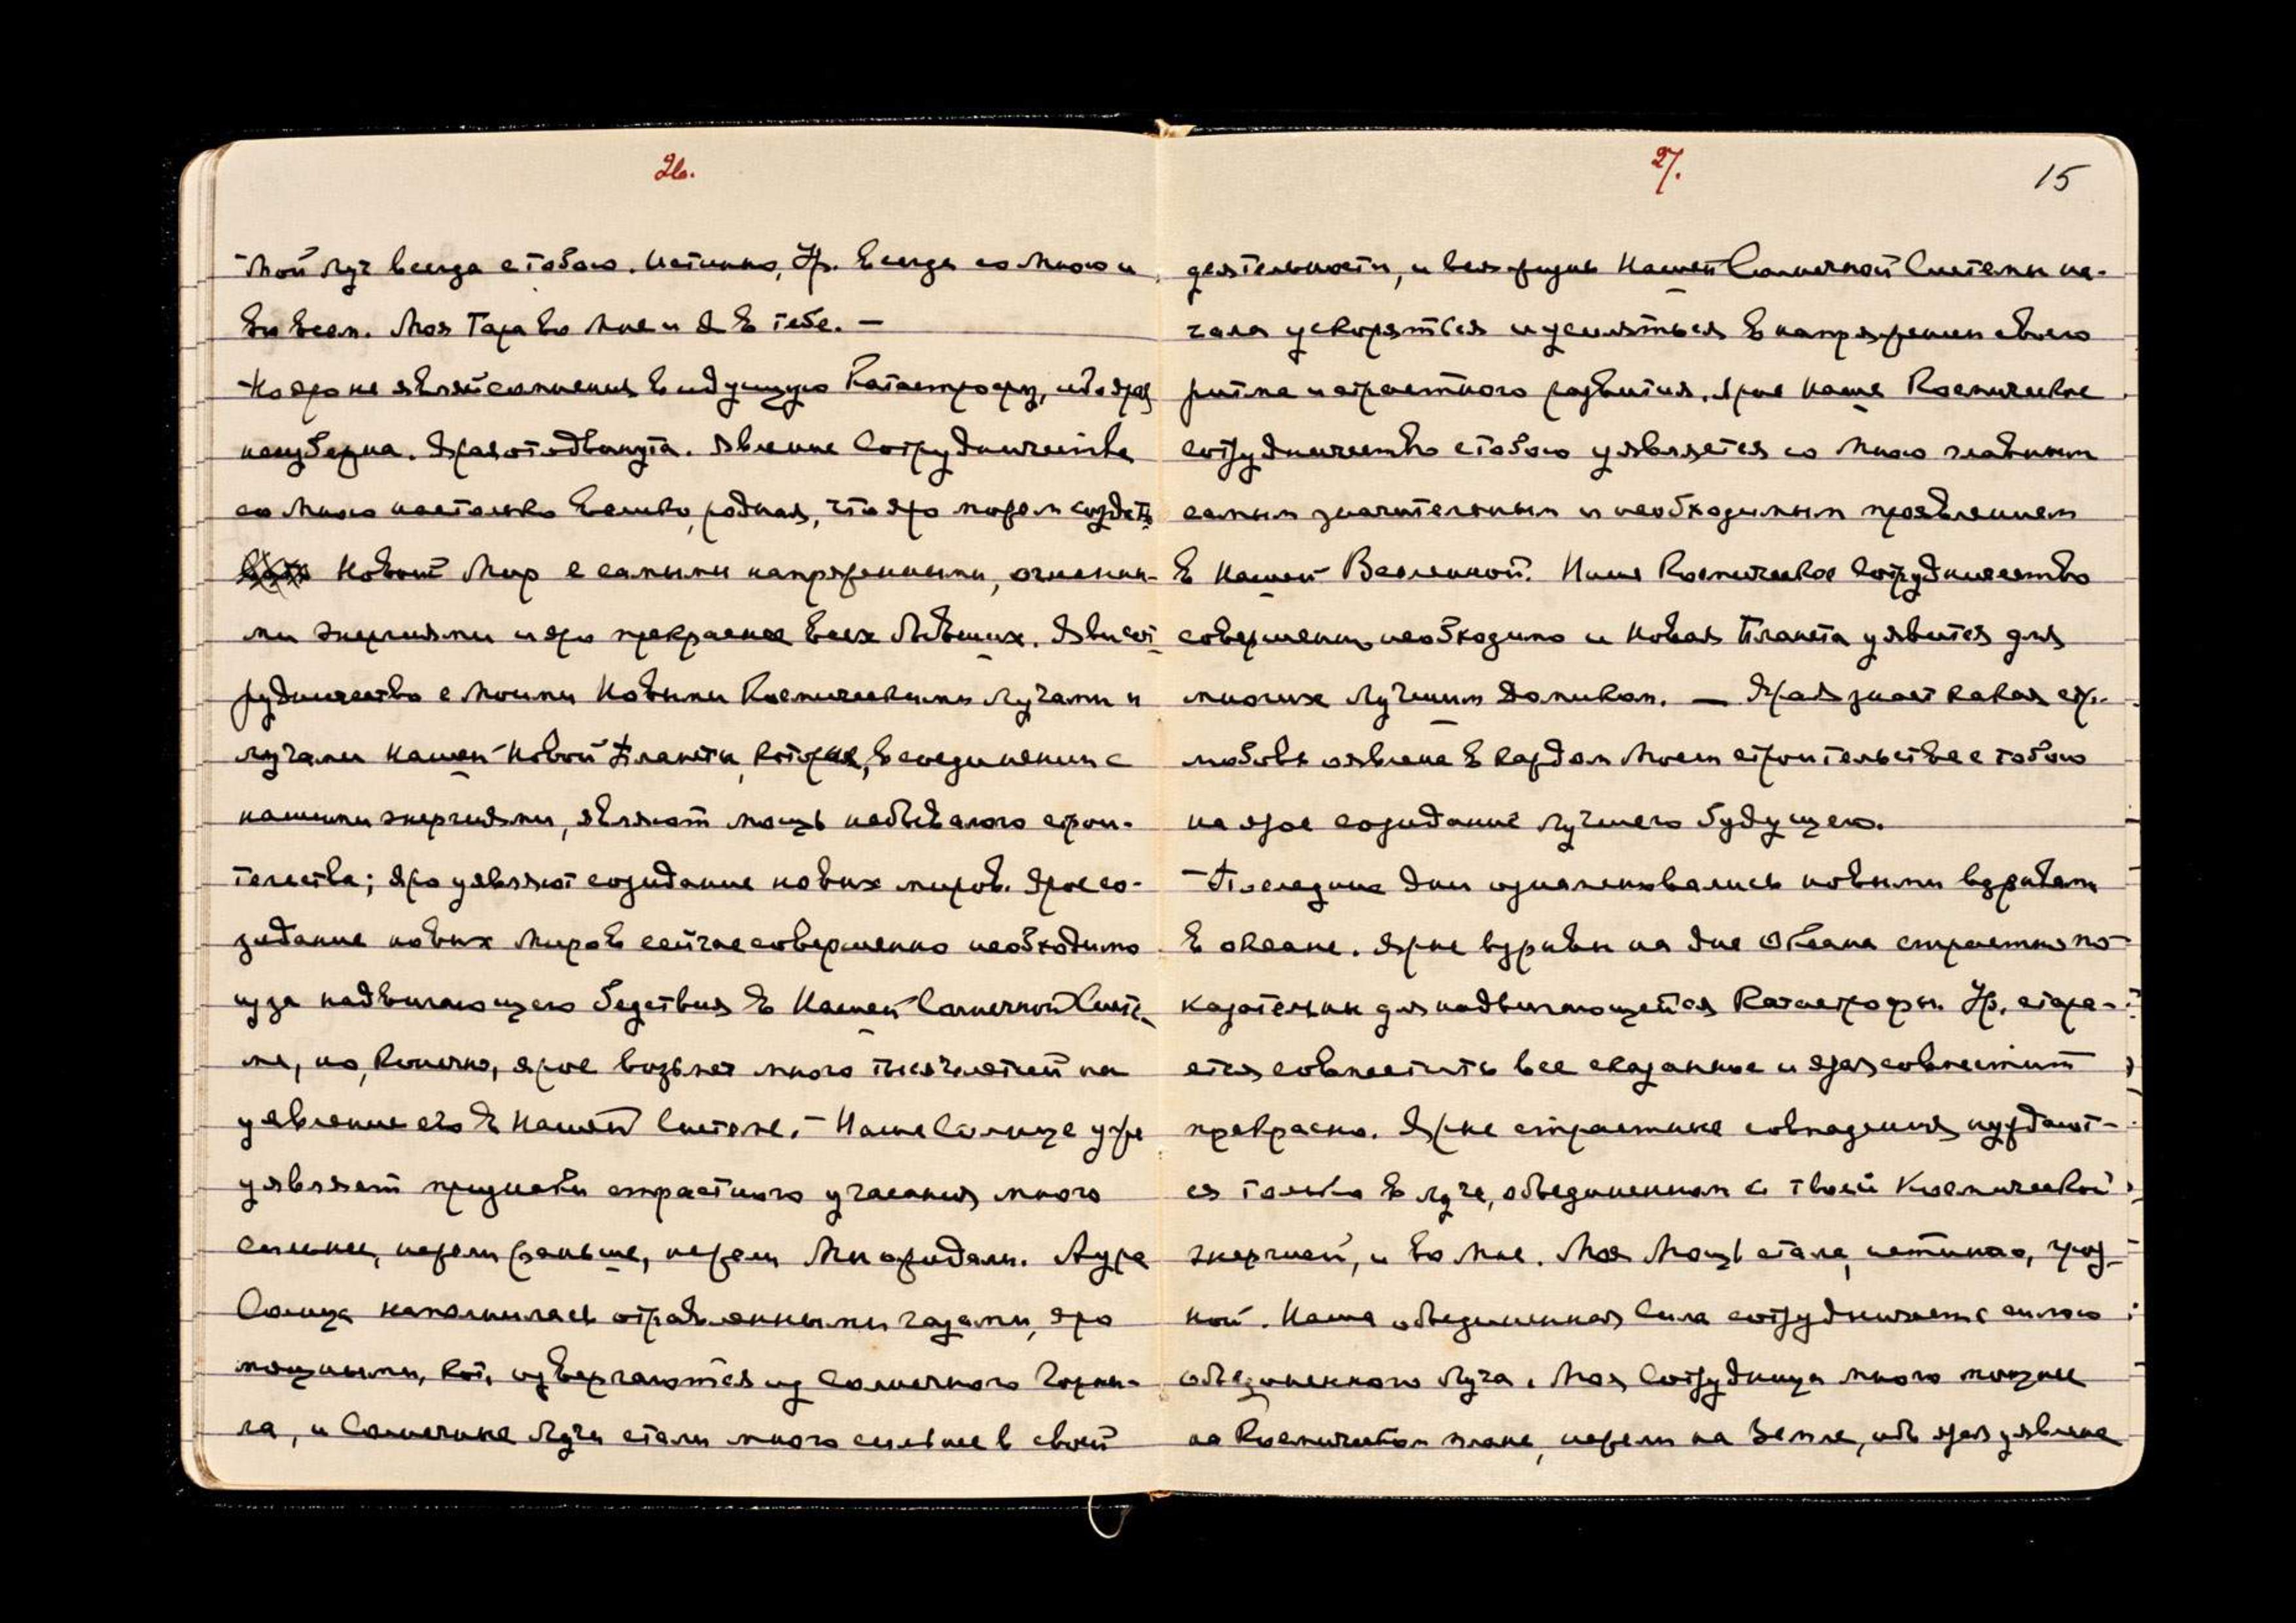 26.
Мой Луч всегда с тобою. Истинно, Ур. всегда со Мною и
во всем. Моя Тара во Мне и Я в тебе. —
Но яро не являй сомнения в идущую Катастрофу, ибо ярая
неизбежна. Ярая отодвинута. Явление Сотрудничества
со Мною настолько велико, родная, что яро можем создать
Новый Мир с самыми напряженными, огненны-
ми энергиями и яро прекраснее всех бывших. Яви сот-
рудничество с Моими Новыми Космическими Лучами и
лучами нашей Новой Планеты, которые, в соединении с
нашими энергиями, являют мощь небывалого строи-
тельства; яро уявляют созидание новых миров. Ярое со-
зидание новых Миров сейчас совершенно необходимо
из за надвигающегося бедствия в Нашей Солнечной Систе-
ме, но, конечно, ярое возьмет много тысячелетий на
уявление его в Нашей Системе. — Наше Солнце уже
уявляет признаки страстного угасания много
сильнее, нежели раньше, нежели Мы ожидали. Аура
Солнца наполнилась отравленными газами, яро
мощными, кот. извергаются из Солнечного Горни-
ла, и Солнечные Лучи стали много сильнее в своей
27.
15
деятельности, и вся жизнь Нашей Солнечной Системы на-
чала ускоряться и усиляться в напряжении своего
ритма и страстного развития. Ярое Наше Космическое
сотрудничество с тобою уявляется со Мною главным
самым значительным и необходимым проявлением
в Нашей Вселенной. Наше Космическое Сотрудничество
совершенно необходимо и Новая Планета уявится для
многих Лучшим Домиком. — Ярая знает какая стр.
любовь оявлена в каждом Моем строительстве с тобою
на ярое созидание Лучшего Будущего.
— Последние дни ознаменовались новыми взрывами
в океане. Ярые взрывы на дне Океана страстно по-
казательны для надвигающейся Катастрофы. Ур. стара-
ется совместить все сказанное и ярая совместит
прекрасно. Ярые страстные совпадения нуждают-
ся только в луче, объединенном с твоей Космической
энергией, и во Мне. Моя Мощь стала, истинно, гроз-
ной. Наша объединенная Сила сотрудничает с силою
объединенного Луча. Моя Сотрудница много мощнее
на Космическом плане, нежели на Земле, ибо ярая уявлена